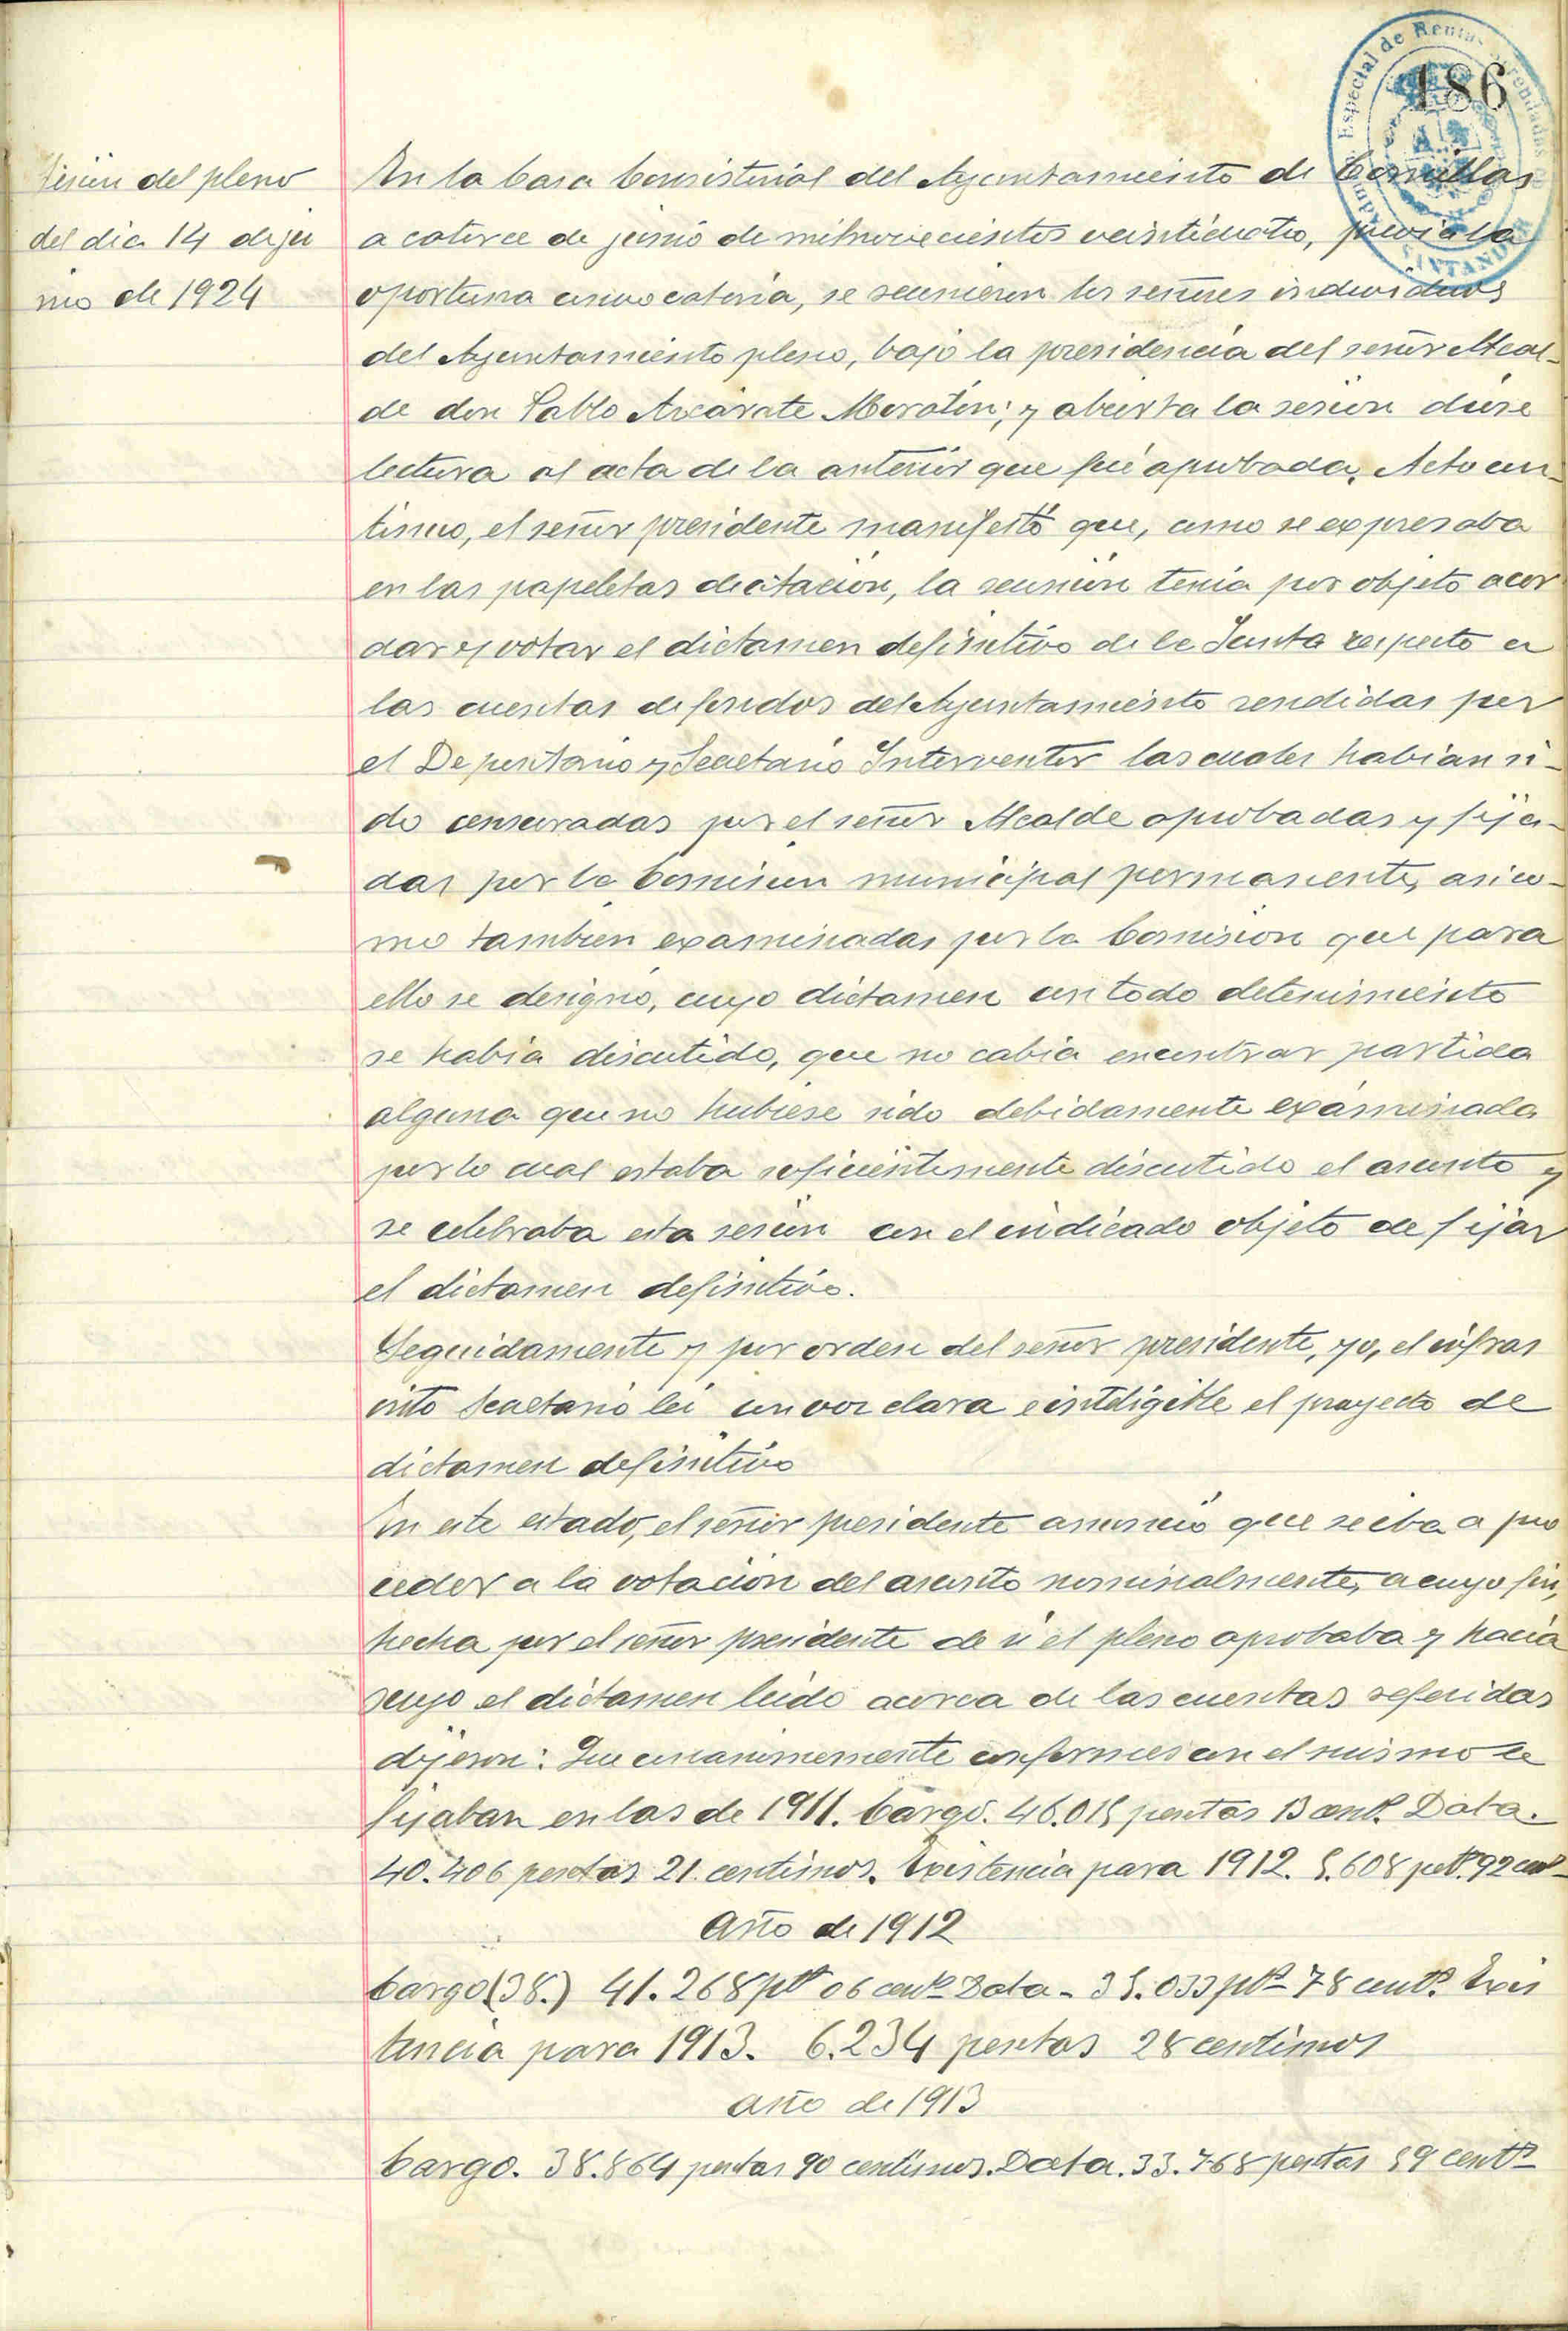 186
Especial de Rentas Arrendadas
SANTANDER
Sesión del pleno
del dia 14 de ju
nio de 1924
En la Casa Consistorial del Ayuntamiento de Comillas
a catorce de junio de mil novecientos veinticuatro, previa la
oportuna convocatoria, se reunieron los señores individuos
del Ayuntamiento pleno, bajo la presidencia del señor Alcal-
de don Pablo Azcárate Moratin; y abierta la sesion dióse
lectura al acta de la anterior que fué aprobada. Acto con-
tinuo, el señor presidente manifestó que, como se expresaba
en las papeletas de citación, la reunión tenia por objeto acor
dar y votar el dictamen definitivo de la Junta respecto a
las cuentas de fondos del Ayuntamiento rendidas por
el Depositario y Secretario Interventor las cuales habian si-
do censuradas por el señor Alcalde aprobadas y fija-
das por la Comision municipal permanente, asi co-
mo tambien examinadas por la Comision que para
ello se designó, cuyo dictamen con todo detenimiento
se habia discutido, que no cabia encontrar partida
alguna que no hubiese sido debidamente examinada
por lo cual estaba suficientemente discutido el asunto y
se celebraba esta sesion con el indicado objeto de fijar
el dictamen definitivo.
Seguidamente y por orden del señor presidente, yo, el infras
crito Secretario lei con voz clara e inteligible el proyecto de
dictamen definitivo
En este estado, el señor presidente anunció que se iba a pro
ceder a la votación del asunto nominalmente, a cuyo fin,
hecha por el señor presidente de si el pleno aprobaba y hacia
suyo el dictamen leido acerca de las cuentas referidas
dijeron: Que unanimemente conformes con el mismo la
fijaban en las de 1911. Cargo. 46.015 pesetas 13 cents. Data.
40.406 pesetas 21 centimos. Existencia para 1912. 5.608 pts. 92 cent
Año de 1912
Cargo (38.) 41.268 pts 06 cents Data - 35.033 pts 78 cents. Exis
tencia para 1913. 6.234 pesetas 28 centimos
Año de 1913
Cargo. 38.864 pesetas 90 centimos. Data. 33.768 pesetas 59 cents